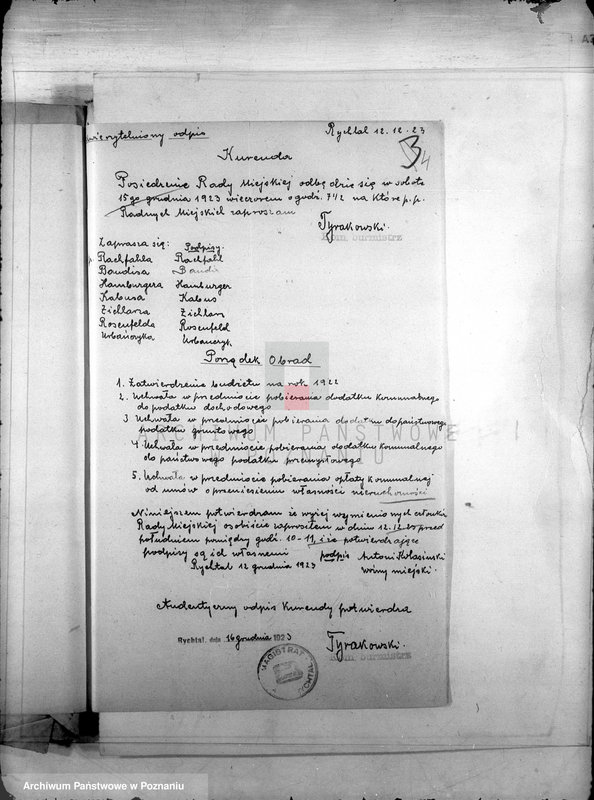 uwierzytelniony odpis
Rychtal 12.12.23
Kurenda
Posiedzenie Rady Miejskiej odbędzie się w sobotę
15go grudnia 1923 wieczorem o godz. 7 1/2 na które p.p.
Radnych Miejskich zapraszam
Tyrakowski.
Kom burmistrz
Zaprasza się: Podpisy.
Rachfahla Rachfahl
Baudisa Baudis
Hamburgera Hamburger
Kabusa Kabus
Ziellarza Ziellarz
Rosenfelda Rosenfeld
Urbańczyka Urbańczyk
Porządek Obrad
1. Zatwierdzenie budżetu na rok 1922
2. Uchwała w przedmiocie pobierania dodatku komunalnego
do podatku dochodowego
3 Uchwała w przedmiocie pobierania dodatku do państwowego
podatku gruntowego
4 Uchwała w przedmiocie pobierania dodatku komunalnego
do państwowego podatku przemysłowego
5. Uchwała w przedmiocie pobierania opłaty komunalnej
od umów o przeniesieniu własności nieruchomości
Niniejszem potwierdzam że wyżej wymienionych członków
Rady Miejskiej osobiście zaprosiłem w dniu 12.12 23 przed
południem pomiędzy godz. 10-11, i że potwierdzające
podpisy są ich własnemi
podpis Antoni
Rychtal 12 grudnia 1923 woźny miejski.
Autentyczny odpis Kurendy potwierdza
Rychtal, dnia 16 grudnia 1923
Tyrakowski.
Kom burmistrz
MAGISTRAT
RYCHTAL
ARCHIWUM PAŃSTWOWE
W POZNANIU
Archiwum Państwowe w Poznaniu